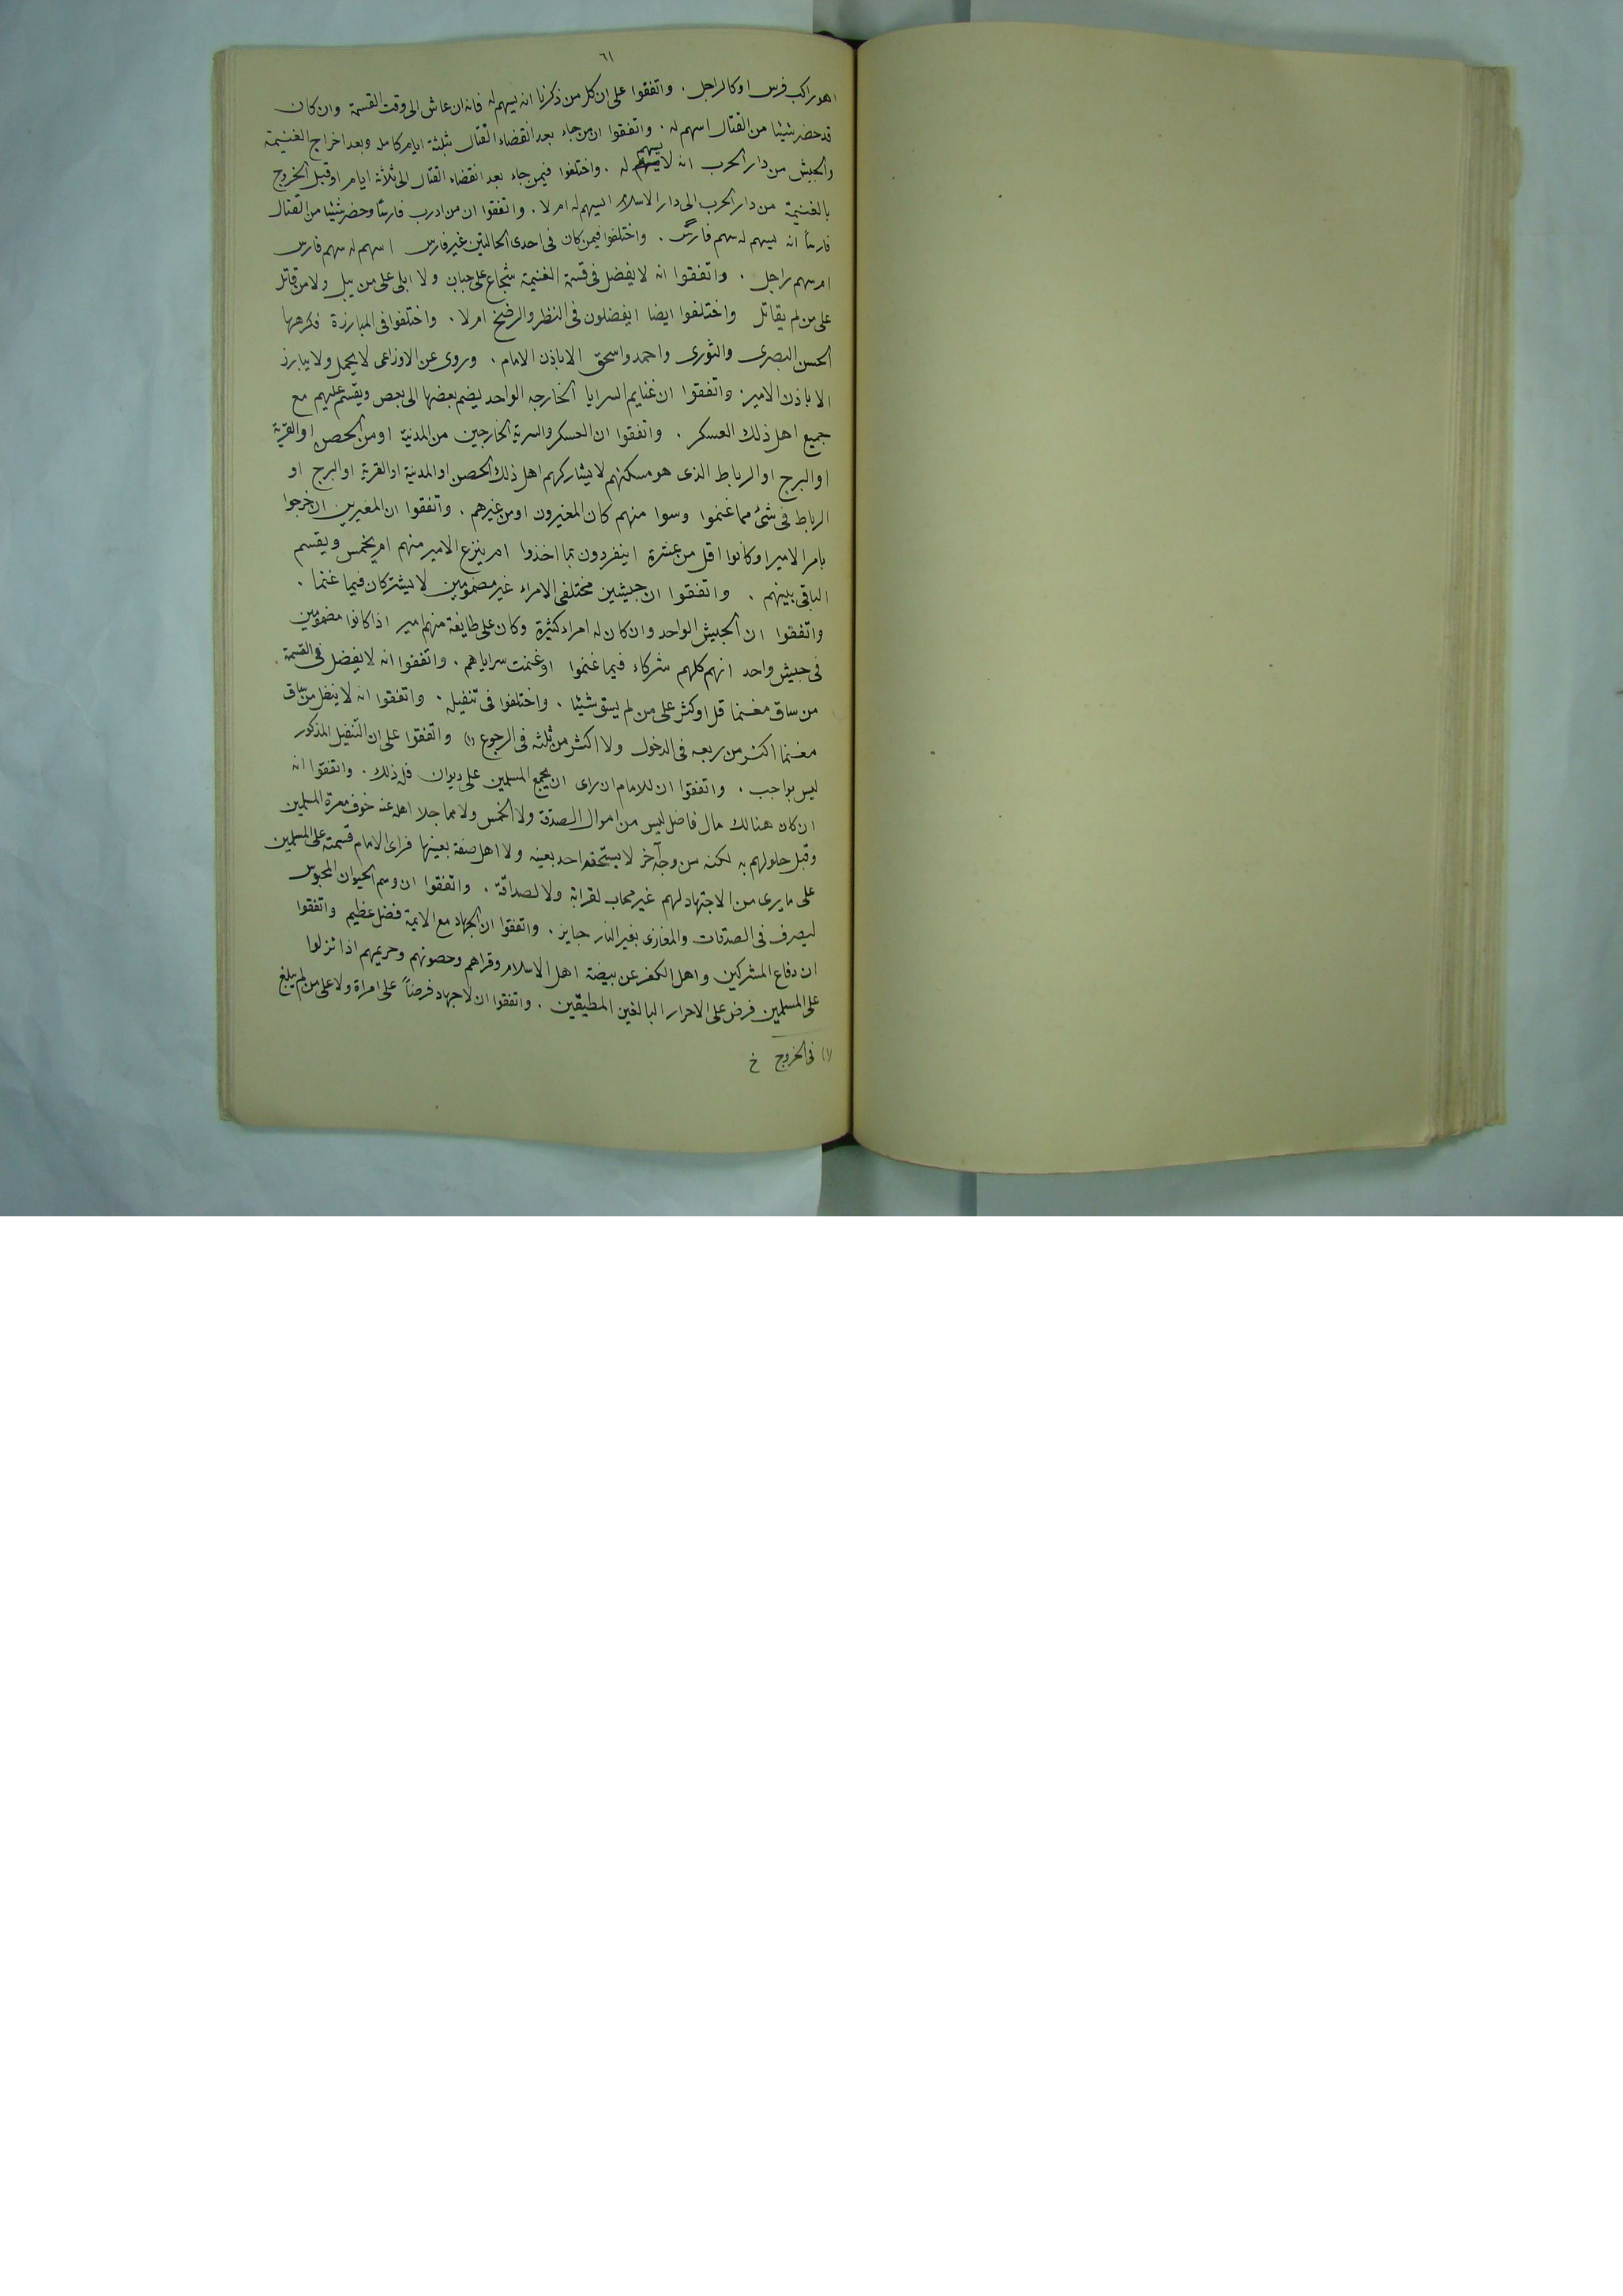 ٦١
اهو راكب فرس او كالراجل . واتفقوا على ان كل من ذكرنا انه يسهم له فانه ان عاش الى وقت القسمة وان كان
قد حضر شيئا من القتال اسهم له . واتفقوا ان من جاء بعد انقضاء القتال بثلثة ايام كامله وبعد اخراج الغنيمة
والجيش من دار الحرب انه لا يسهم له . واختلفوا فيمن جاء بعد انقضاء القتال الى ثلاثة ايام او قبل الخروج
بالغنيمة من دار الحرب الى دار الاسلام ايسهم له ام لا . واتفقوا ان من ادرب فارسًا وحضر شيئا من القتال
فارسًا انه يسهم له سهم فارس . واختلفوا فيمن كان فى احدى الحالتين غير فارس اسهم له سهم فارس
ام سهم راجل . واتفقوا انه لا يفضل فى قسمة الغنيمة شجاع على جبان ولا ابلى على من يبل ولا من قاتل
على من لم يقاتل واختلفوا ايضا ايفضلون فى النظر والرضخ ام لا . واختلفوا فى المبارزة فكرهها
الحسن البصرى والثورى واحمد واسحق الا باذن الامام . وروى عن الاوزاعى لا يحمل ولا يبارز
الا باذن الامير . واتفقوا ان غنايم السرايا الخارجه الواحد يضم بعضها الى بعض ويقسم عليهم مع
جميع اهل ذلك العسكر . واتفقوا ان العسكر والسرية الخارجين من المدنية او من الحصن او القرية
او البرج او الرباط الذى هو مسكنهم لا يشاركهم اهل ذلك الحصن او المدنية او القرية او البرج او
الرباط فى شئ مما غنموا وسوا منهم كان المغيرون او من غيرهم . واتفقوا ان المغيرين ان خرجوا
بامر الامير او كانوا اقل من عشرة اينفردون بما اخذوا ام ينزع الامير منهم ام يخمس ويقسم
الباقى بينهم . واتفقوا ان جيشين مختلفى الامراء غير مضمومين لا يشتركان فيما غنما .
واتفقوا ان الجيش الواحد وان كان له امراء كثيرة وكان على طايفة منهم امير اذا كانوا مضمومين
فى جيش واحد انهم كلهم شركاء فيما غنموا او غنمت سراياهم . واتفقوا انه لا يفضل فى القسمة
من ساق مغنما قل او كثر على من لم يسق شيئا . واختلفوا فى تنفيله . واتفقوا انه لا ينفل من ساق
مغنما اكثر من ربعه فى الدخول ولا اكثر من ثلثه فى الرجوع (١) واتفقوا على ان التنفيل المذكور
ليس بواجب . واتفقوا ان للامام ان راى ان يجمع المسلمين على ديوان فله ذلك . واتفقوا انه
ان كان هنالك مال فاضل ليس من اموال الصدقة ولا الخمس ولا مما جلا اهله عنه خوف معرة المسلمين
وقبل حلولهم به لكنه من وجه آخر لا يستحقه احد بعينه ولا اهل صفة بعينها فراى الامام قسمته على المسلمين
على ما يرى من الاجتهاد لهم غير محاب لقرابة ولا لصداقة . واتفقوا ان وسم الحيوان المحبوس
ليصرف فى الصدقات والمغازى بغير النار جايز . واتفقوا ان الجهاد مع الايمة فضل عظيم واتفقوا
ان دفاع المشركين واهل الكفر عن بيضة اهل الاسلام وقراهم وحصونهم وحريمهم اذا نزلوا
على المسلمين فرض على الاحرار البالغين المطيقين . واتفقوا ان لا جهاد فرضاً على امراة ولا على من لم يبلغ
(١) فى الخروج خ